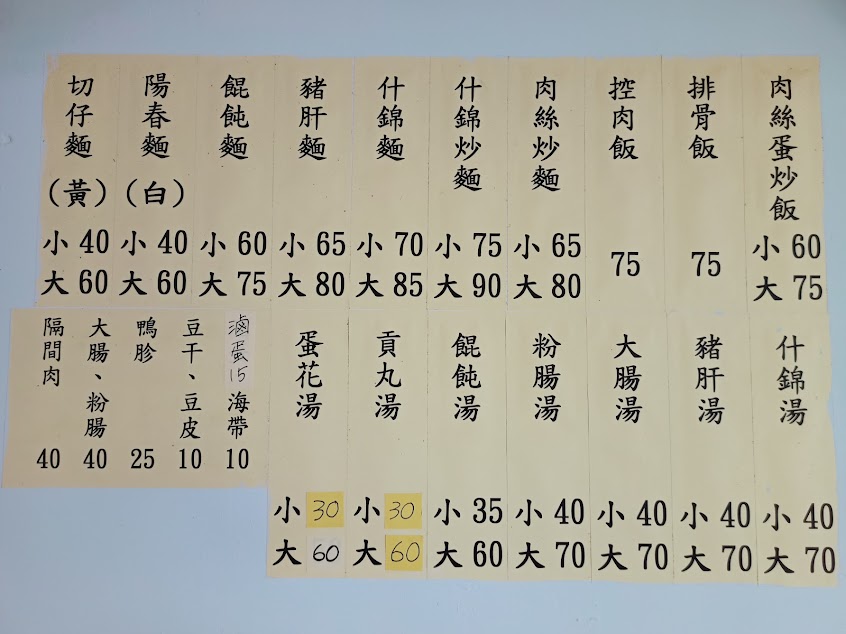 肉絲蛋炒飯 小 60 大 75
排骨飯 75
控肉飯 75
肉絲炒麵 小 65 大 80
什錦炒麵 小 75 大 90
什錦麵 小 70 大 85
豬肝麵 小 65 大 80
餛飩麵 小 60 大 75
陽春麵(白) 小 40 大 60
切仔麵(黃) 小 40 大 60
什錦湯 小 40 大 70
豬肝湯 小 40 大 70
大腸湯 小 40 大 70
粉腸湯 小 40 大 70
餛飩湯 小 35 大 60
貢丸湯 小 30 大 60
蛋花湯 小 30 大 60
滷蛋15 海帶 10
豆干、豆皮 10
鴨胗 25
大腸、粉腸 40
隔間肉 40